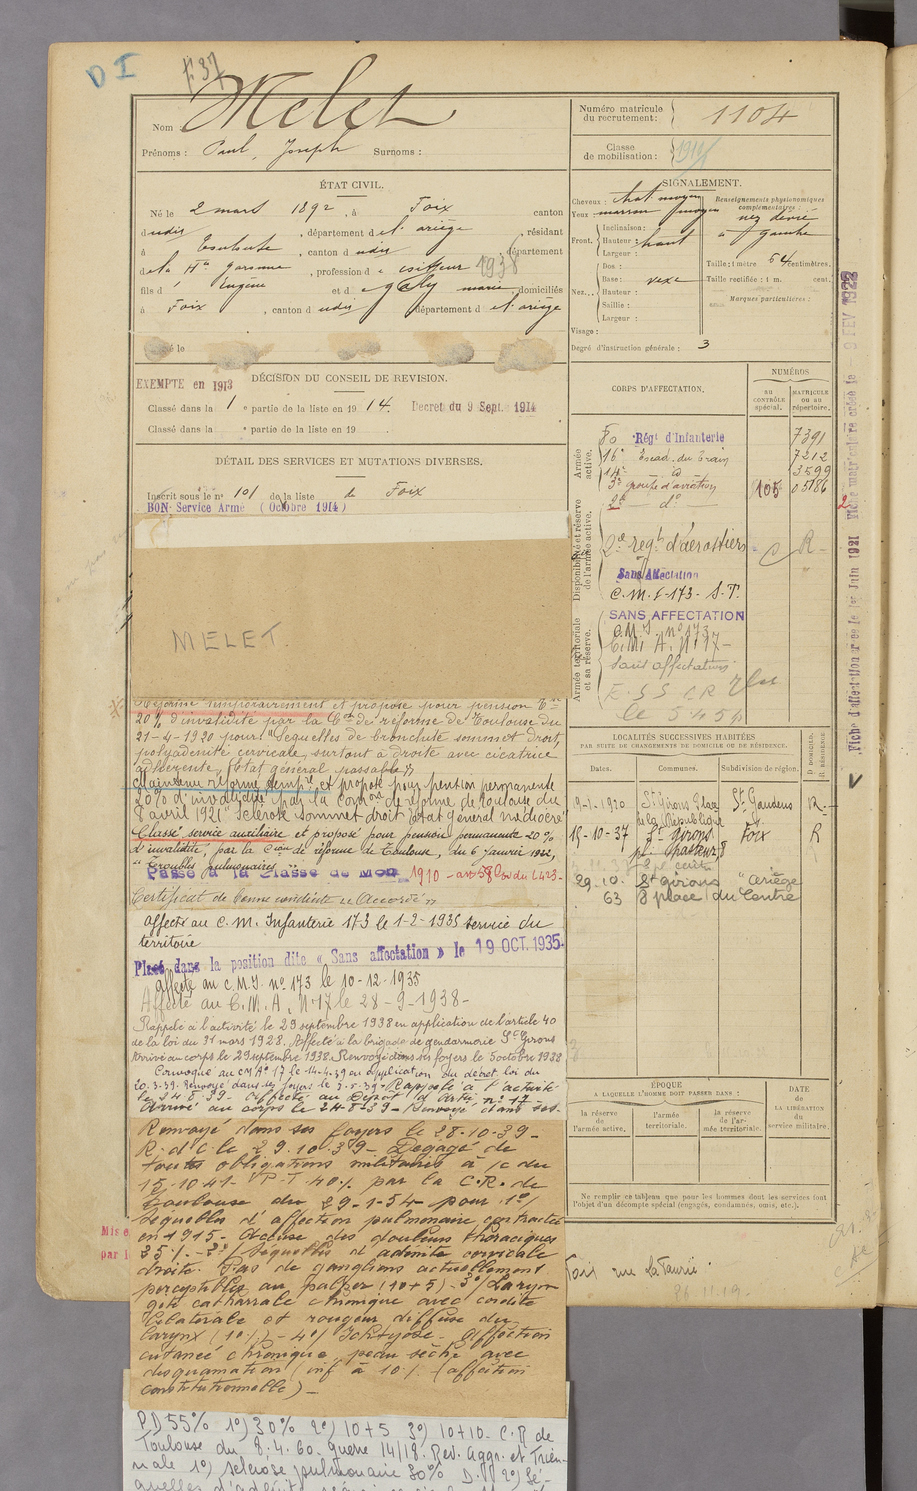 D I
F 37
Nom : Melet
Prénoms : Paul, Joseph Surnoms :
Numéro matricule du recrutement : 1104
Classe de mobilisation :
ÉTAT CIVIL.
Né le 2 mars 1892, à Foix canton
dudit, département de l'ariège, résidant
à Toulouse, canton dudit, département
de la Hte Garonne, profession de coiffeur 1938
fils d' Eugène et de Galy marie domiciliés
à Foix, canton dudit département de l'ariège
SIGNALEMENT.
Cheveux : chat moyen
Yeux marron moyen
Front. Inclinaison :
Hauteur : haut
Largeur :
Nez... Dos :
Base : vexe
Hauteur :
Saillie :
Largeur :
Visage :
Degré d'instruction générale : 3
Renseignements physionomiques complémentaires :
nez dévié
à gauche
Taille : 1 mètre 54 centimètres.
Taille rectifiée : 1 m. cent.
Marques particulières :
é le
DÉCISION DU CONSEIL DE REVISION.
EXEMPTE en 1913
Classé dans la 1 e partie de la liste en 1914. Decret du 9 Sept. 1914
Classé dans la e partie de la liste en 19
DÉTAIL DES SERVICES ET MUTATIONS DIVERSES.
Inscrit sous le n° 101 de la liste de Foix
BON Service Armé (Octobre 1914)
MELET.
Réformé temporairement et proposé pour pension
20% d'invalidité par la Con de réforme de Toulouse du
21-4-1920 pour "Sequelles de bronchite sommet droit,
polyadénite cervicale, surtout à droite avec cicatrice
adhérente, (Etat général passable)"
Maintenu réformé temp re et proposé pour pension permanente
20% d'invalidité par la Comon de réforme de Toulouse du
8 avril 1921 "Sclérose sommet droit état général médiocre"
Classé service auxiliaire et proposé pour pension permanente 20%
d'invalidité, par la Cion de réforme de Toulouse, du 6 Janvier 1922,
"Troubles pulmonaires"
Passé à la Classe de Mon 1910 - art 58 loi du 1.4.23.
Certificat de bonne conduite "Accordé"
affecté au C.M. Infanterie 173 le 1-2-1935 service du
territoire
Placé dans la position dite « Sans affectation » le 19 OCT. 1935
affecté au C.M.I. n° 173 le 10-12-1935
Affecté au C.M.A. N°17 le 28-9-1938-
Rappelé à l'activité le 29 septembre 1938 en application de l'article 40
de la loi du 31 mars 1928. Affecté à la brigade de gendarmerie St Girons
Arrivé au corps le 29 septembre 1938. Renvoyé dans ses foyers le 5 octobre 1938
Convoqué au CMA° 17 le 14-4-39 en application du décret loi du
20.3.39. Renvoyé dans ses foyers le 3-5-39 - Rappelé à l'activité
le 24.8.39 - Affecté au Dépôt d'Artie n° 17
Arrivé au corps le 24-8-39 - Renvoyé dans ses
Renvoyé dans ses foyers le 28-10-39 -
R. d C. le 29.10.39 - Dégagé de
toutes obligations militaires à /c du
15.10.41 - P.T 40% par la C.R. de
Toulouse du 29-1-54 pour 1°/
Séquelles d'affection pulmonaire contractée
en 1915 - Accuse des douleurs thoraciques
25% - 2°/ Séquelles d'adénite cervicale
droite. Pas de ganglions actuellement
perceptibles au palper (10+5) - 3°/ Laryn-
gite catharrale chronique avec cordite
bilatérale et rougeur diffuse du
larynx (10%) - 4°/ Ichtyose - affection
cutanée chronique, peau sèche avec
desquamation (inf à 10% (affection
constitutionnelle) -
PD 55% 1°) 30% 2°) 10+5 3°) 10+10 - C.R de
Toulouse du 8.4.60. guerre 14/18. Rev. Aggr. et Trien-
nale 1°) sclérose pulmonaire 30% D. 2°) Sé-
CORPS D'AFFECTATION.
NUMÉROS
AU CONTRÔLE spécial.
MATRICULE ou au répertoire.
Armée active.
80 Régt d'Infanterie 7391
16e Escad. du Train 7212
14e id 3599
3e groupe d'aviction 105 05186
2e — do —
Disponibilité et réserve de l'armée active.
2e regt d'aérostiers C R -
Sans Affectation
C.M.I-173- S.T.
SANS AFFECTATION
Armée territoriale et sa réserve.
C.M.I. n° 173
C.M. A. N°17-
Sans affectation
LOCALITÉS SUCCESSIVES HABITÉES
PAR SUITE DE CHANGEMENTS DE DOMICILE OU DE RÉSIDENCE.
Dates. Communes. Subdivision de région. D DOMICILE. R RÉSIDENCE
9-1-1920 St Girons Place de la République St Gaudens R
15-10-37 St Girons pl. Pasteur 8 Foix R
29-10-63 St girons 8 place du Centre Ariège
ÉPOQUE
A LAQUELLE L'HOMME DOIT PASSER DANS :
la réserve de l'armée active.
l'armée territoriale.
la réserve de l'armée territoriale.
DATE DE LA LIBÉRATION du service militaire.
Ne remplir ce tableau que pour les hommes dont les services font l'objet d'un décompte spécial (engagés, condamnés, omis, etc.).
Foix rue La Faurie.
Mis e
par l
Fiche d'affectation créée le 1er Juin 1921 Fiche matriculaire créée le - 9 FEV 1922